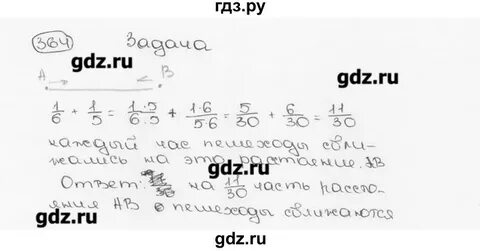 гдз.ру
364 Задача
gdz.ru gdz.ru
A B
1/6 + 1/5 = 1·5/6·5 + 1·6/5·6 = 5/30 + 6/30 = 11/30
каждый час пешеходы сбли-
жались на это расстояние. AB
Ответ: на 11/30 часть рассто-
яния AB пешеходы сближаются
gdz.ru gdz.ru